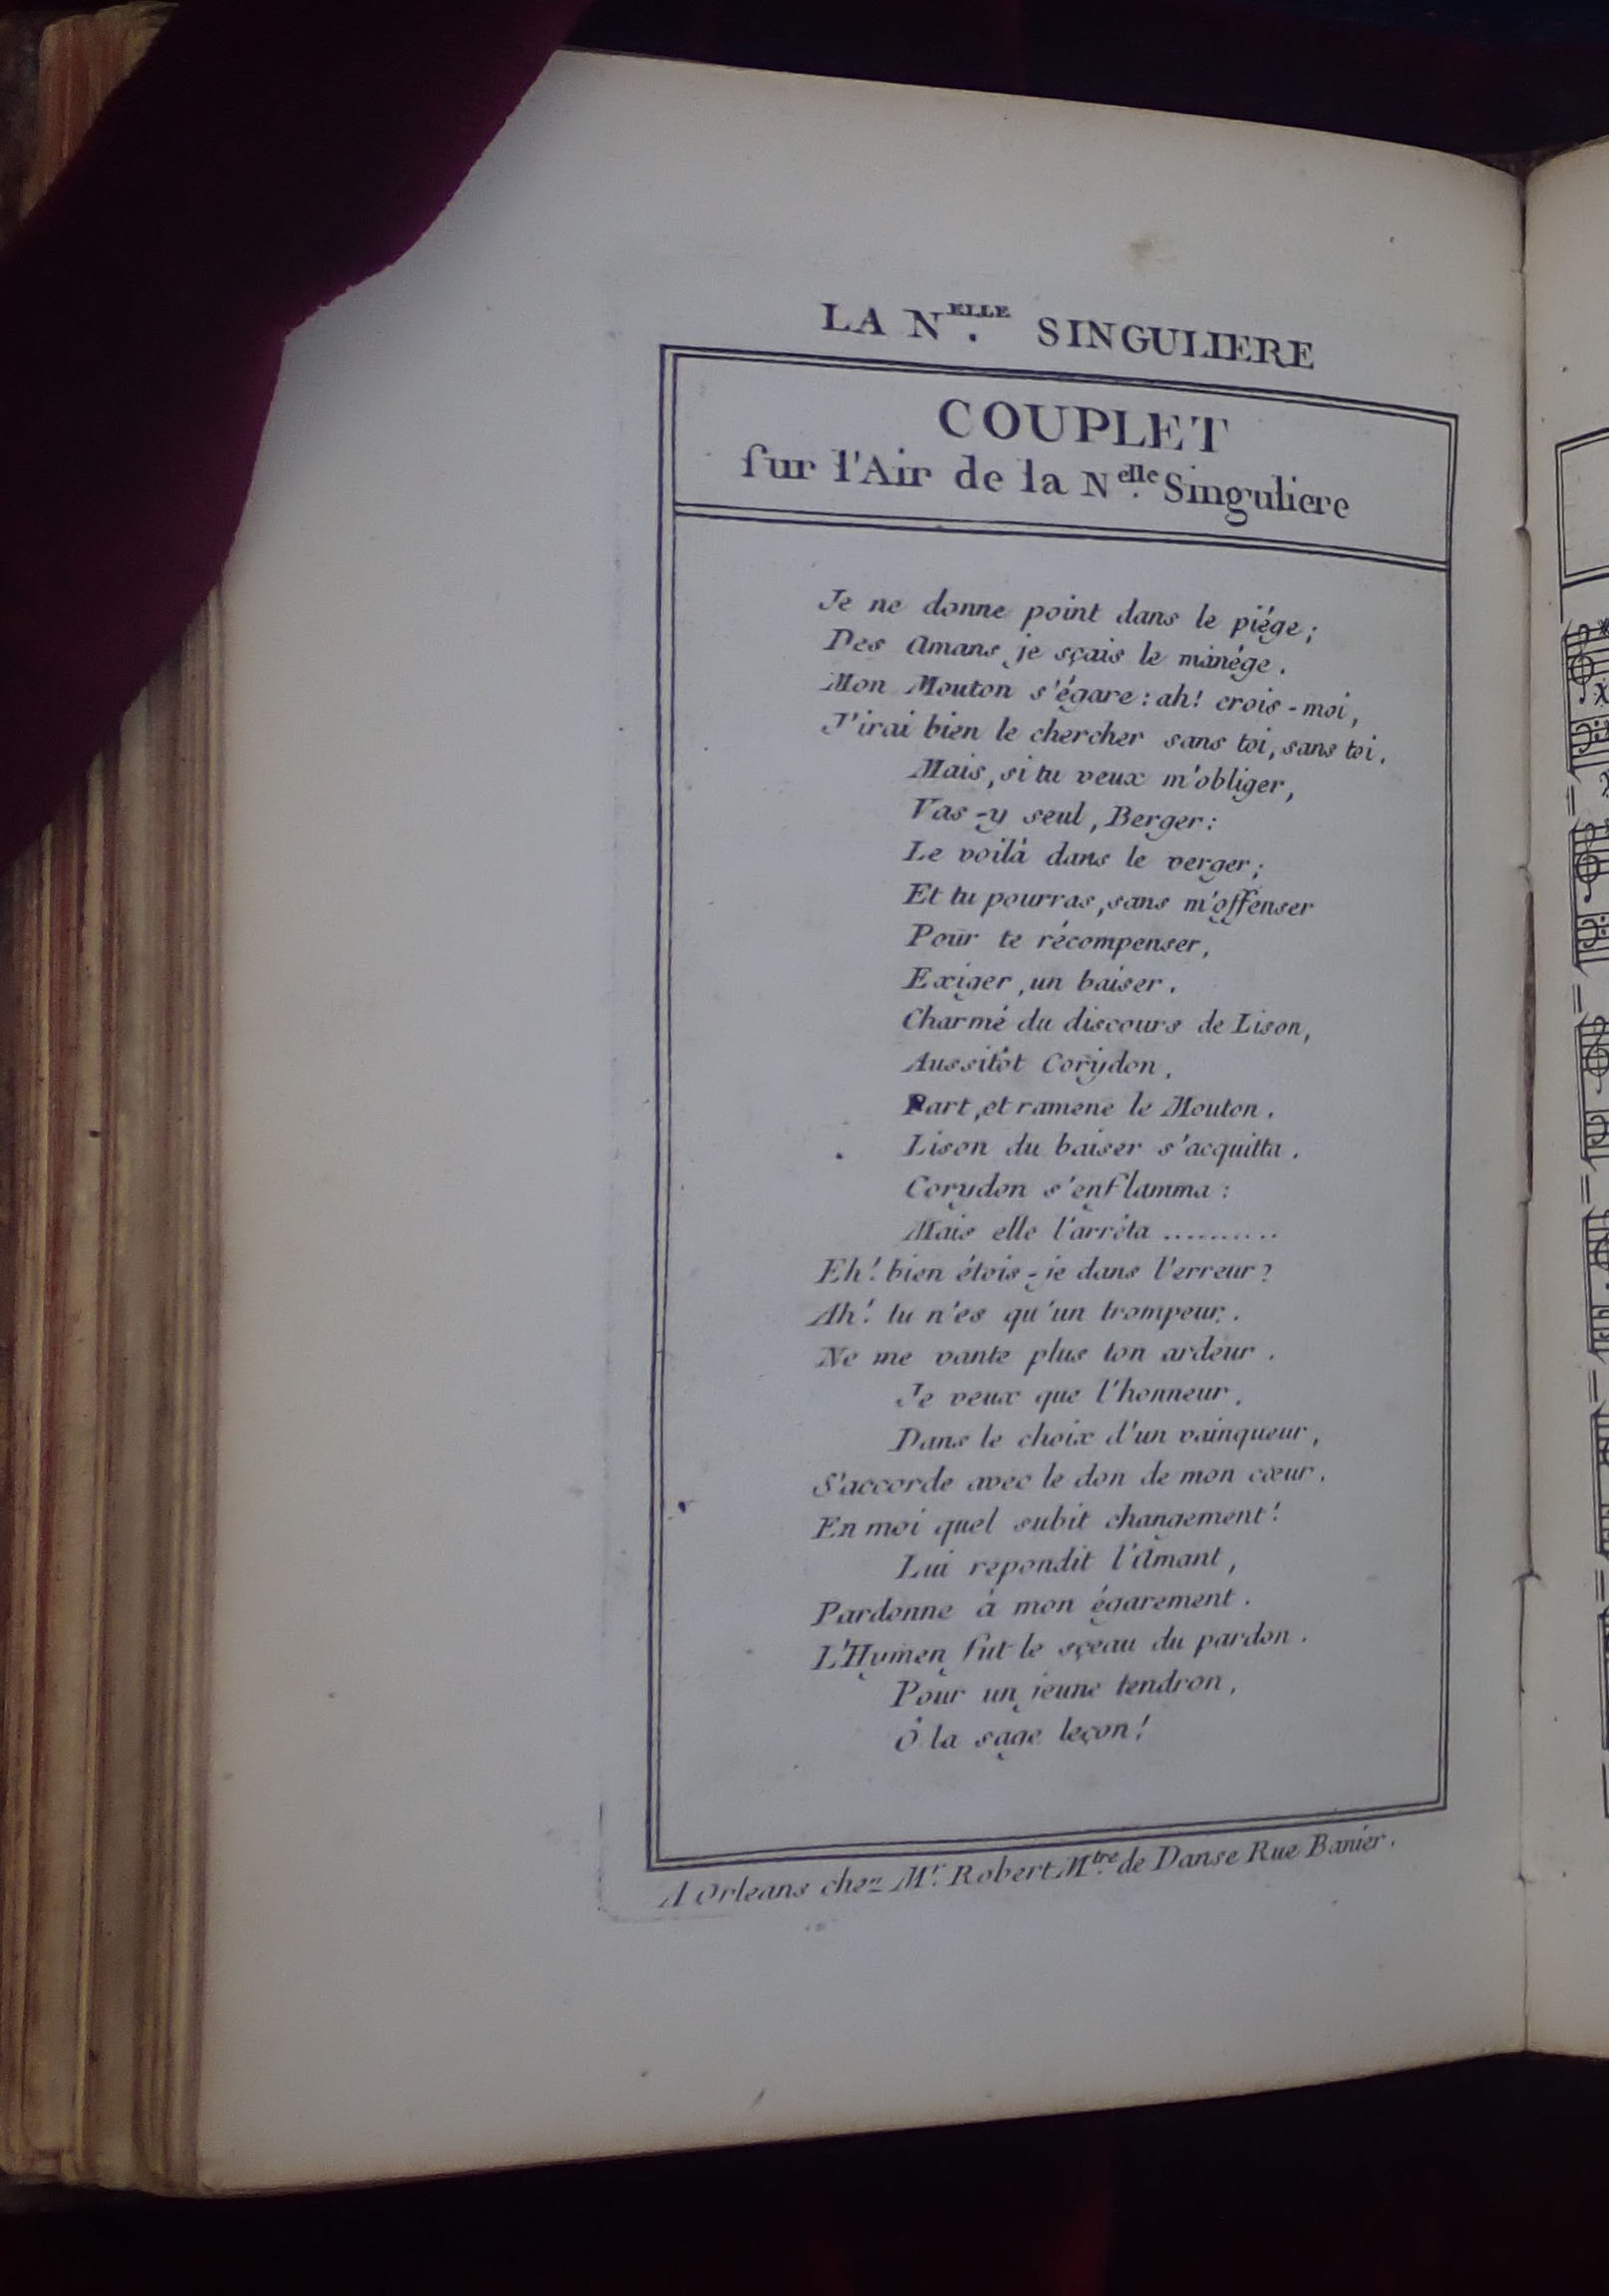 LA N.ELLE SINGULIERE
COUPLET
sur l'Air de la N.elle Singuliere
Je ne donne point dans le piége;
Des Amans je sçais le manége.
Mon Mouton s'égare: ah! crois-moi,
J'irai bien le chercher sans toi, sans toi.
Mais, si tu veux m'obliger,
Vas-y seul, Berger:
Le voilà dans le verger;
Et tu pourras, sans m'offenser
Pour te récompenser,
Exiger, un baiser.
Charmé du discours de Lison,
Aussitôt Corydon,
Part, et ramene le Mouton.
Lison du baiser s'acquitta.
Corydon s'enflamma:
Mais elle l'arrêta ..........
Eh! bien étois-je dans l'erreur?
Ah! tu n'es qu'un trompeur.
Ne me vante plus ton ardeur.
Je veux que l'honneur,
Dans le choix d'un vainqueur,
S'accorde avec le don de mon cœur.
En moi quel subit changement!
Lui repondit l'Amant,
Pardonne à mon égarement.
L'Hymen fut le sçeau du pardon.
Pour un jeune tendron,
Ô la sage leçon!
A Orleans chez Mr. Robert Mtre. de Danse Rue Banier.